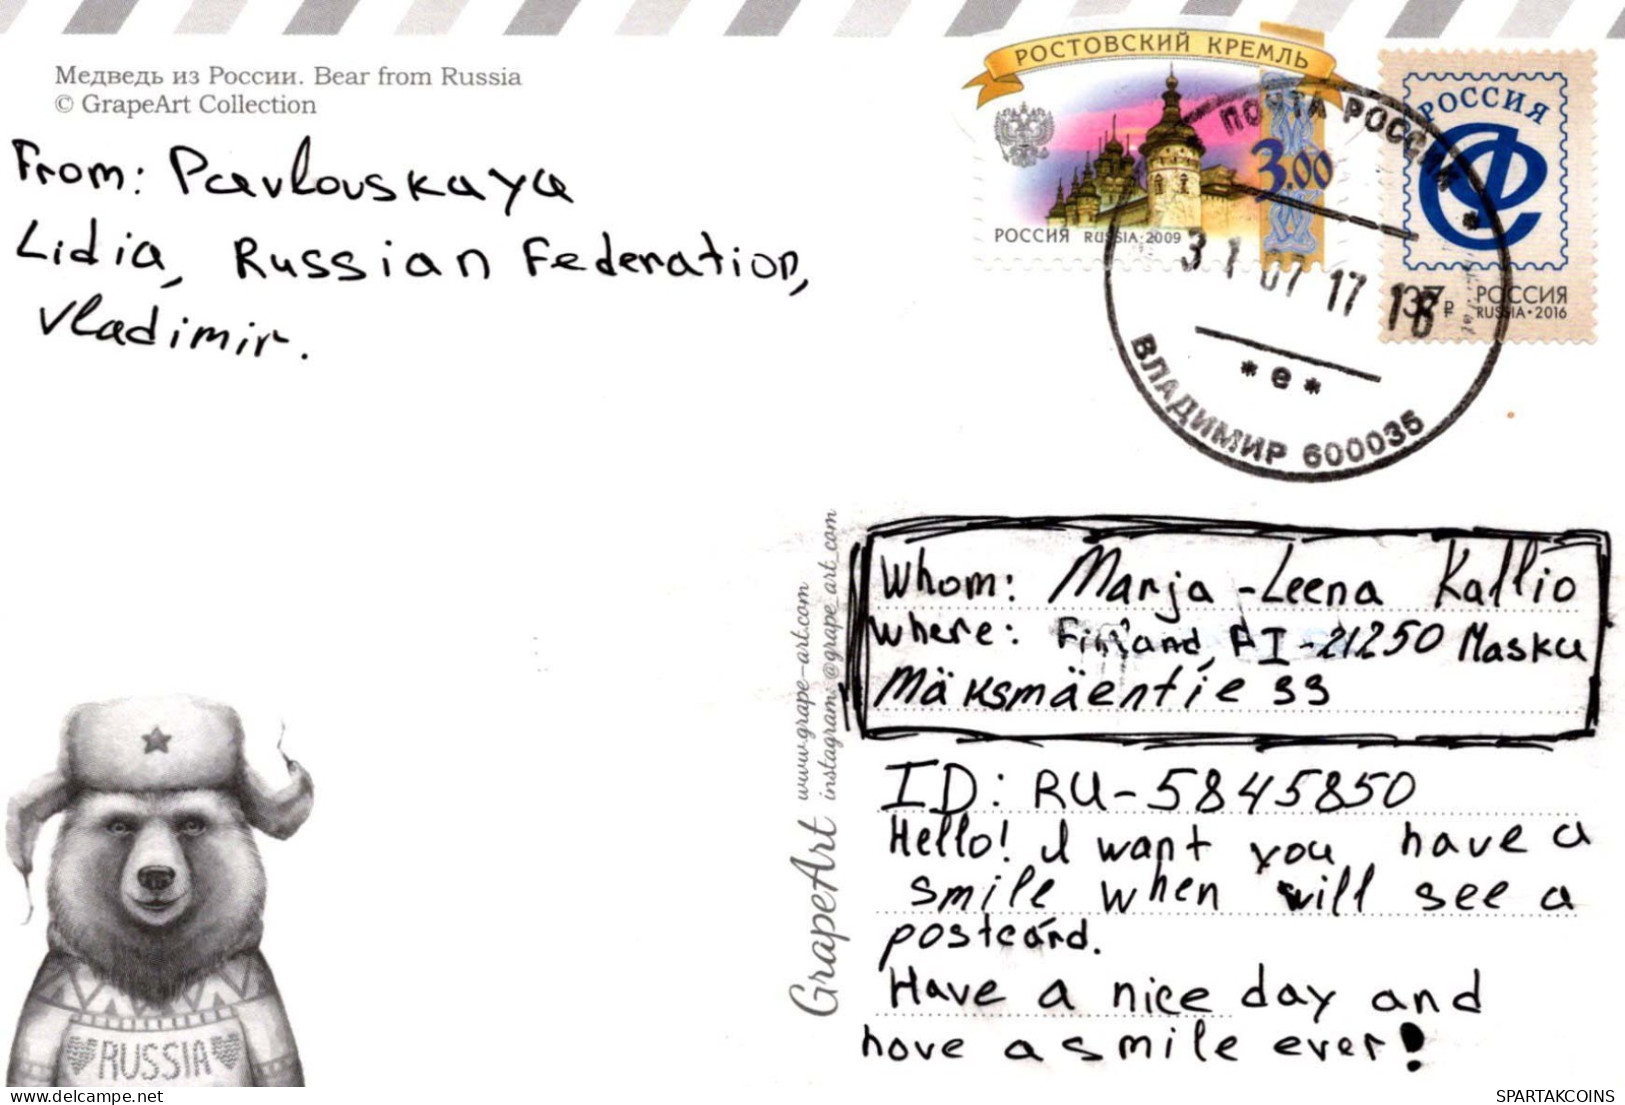 Медведь из России. Bear from Russia
© GrapeArt Collection
From: Pavlovskaya
Lidia, Russian Federation,
Vladimir.
РОСТОВСКИЙ КРЕМЛЬ
3.00
РОССИЯ RUSSIA·2009
РОССИЯ
37 Р
РОССИЯ
RUSSIA·2016
ПОЧТА РОССИИ
31 07 17 18
* е *
ВЛАДИМИР 600035
Whom: Marja-Leena Kallio
where: Finland, FI-21250 Masku
Mäksmäentie 33
ID: RU-5845850
Hello! I want you have a
smile when will see a
postcard.
Have a nice day and
have a smile ever!
GrapeArt www.grape-art.com
instagram: @grape_art_com
RUSSIA
delcampe.net
SPARTAKCOINS